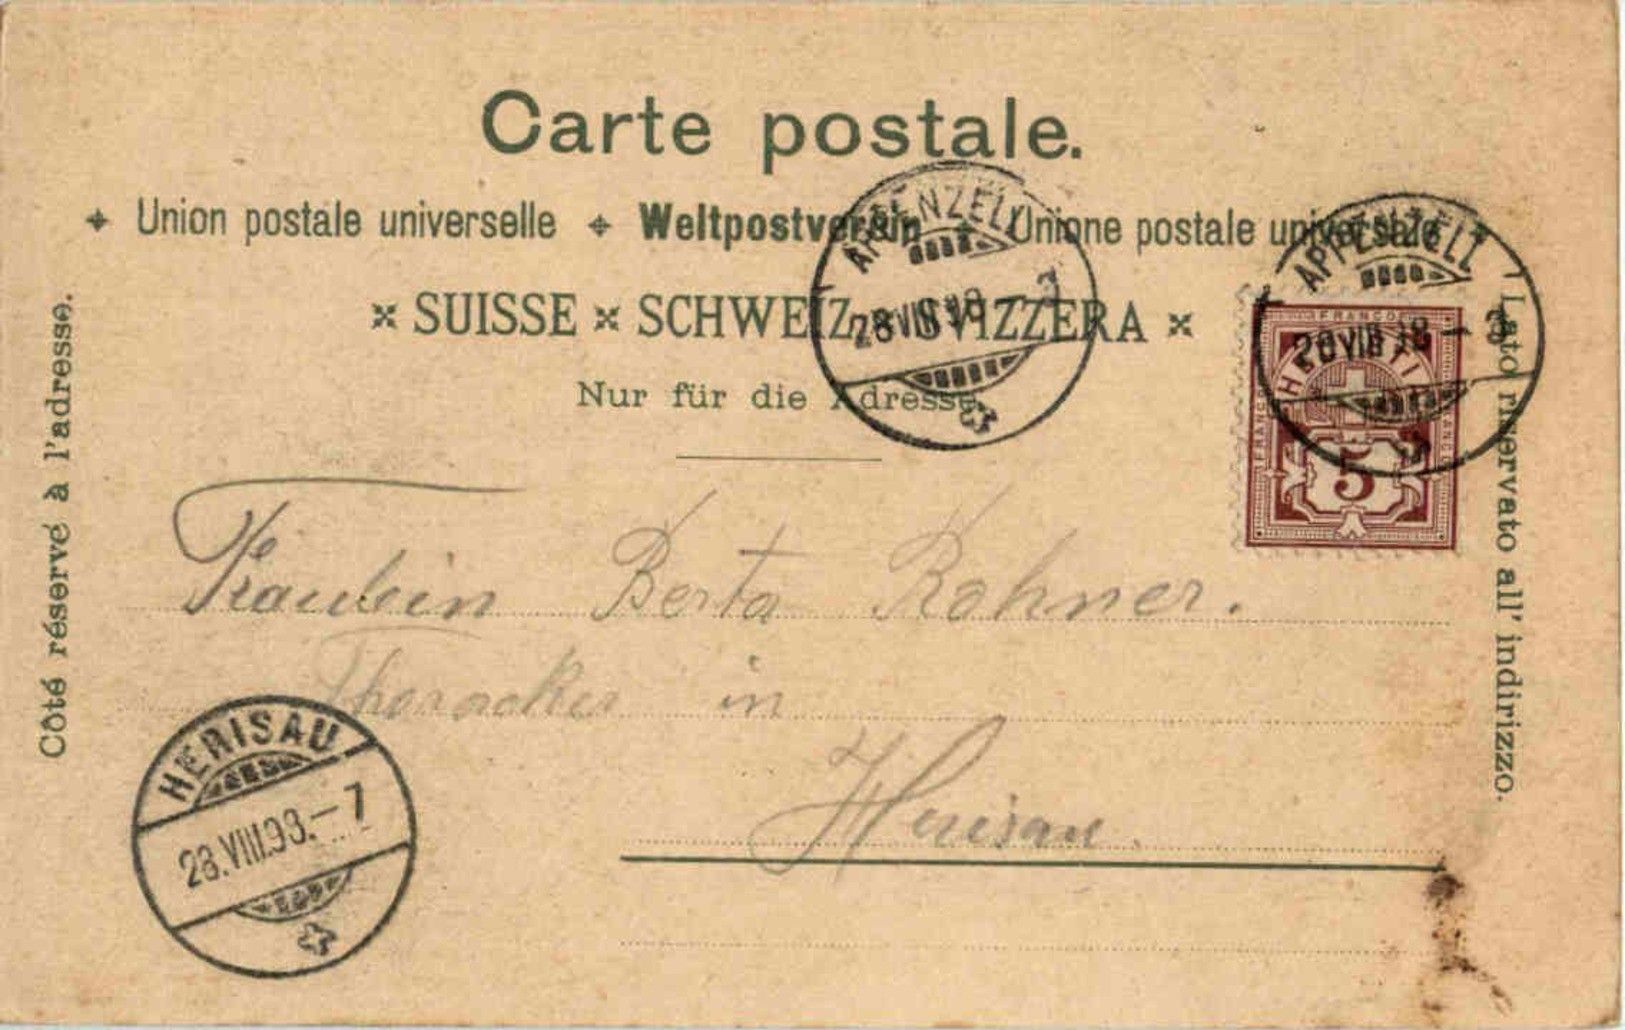 Carte postale.
✦ Union postale universelle ✦ Weltpostverein ✦ Unione postale universale
SUISSE × SCHWEIZ × SVIZZERA ×
Nur für die Adresse
Côté réservé à l'adresse.
Lato riservato all' indirizzo.
APPENZELL
28.VIII.98
APPENZELL
28.VIII.98
FRANCO
HELVETIA
5
Fräulein Berta Rohner.
in
Herisau.
HERISAU
28.VIII.98.-7